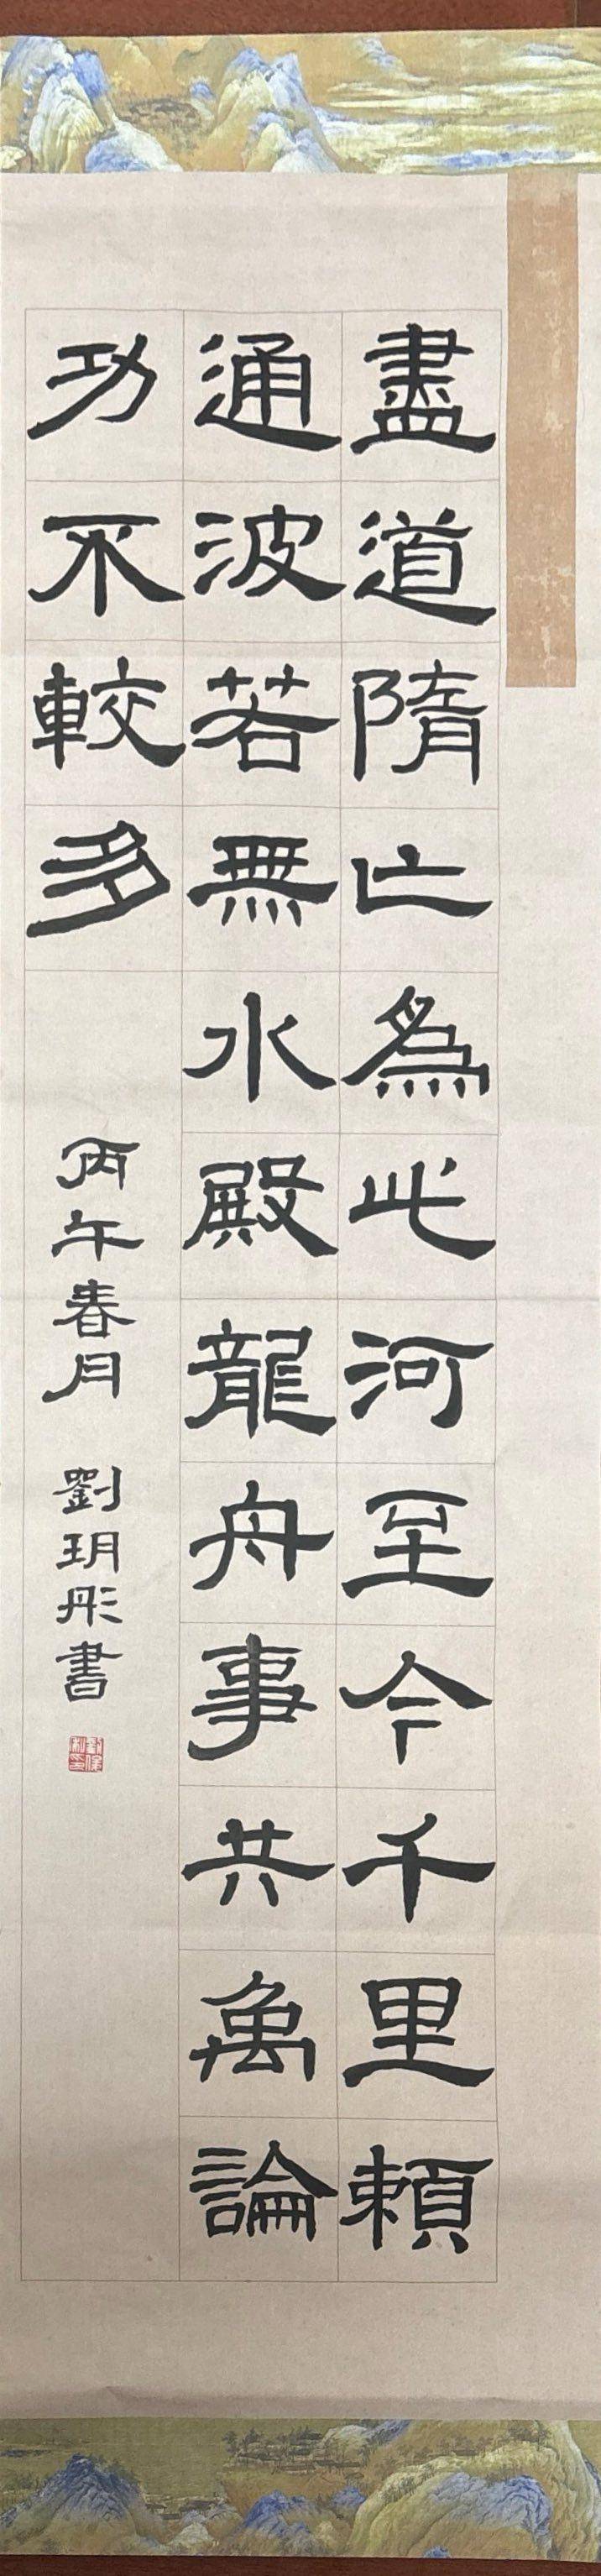 盡道隋亡為此河至今千里賴
通波若無水殿龍舟事共禹論
功不較多
丙午春月 劉玥彤書